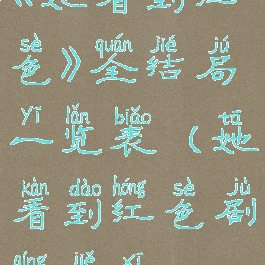 看到
sè quán jié jú
色》全结局
yī lǎn biǎo tā
一览表（她
kàn dào hóng sè jù
看到红色剧